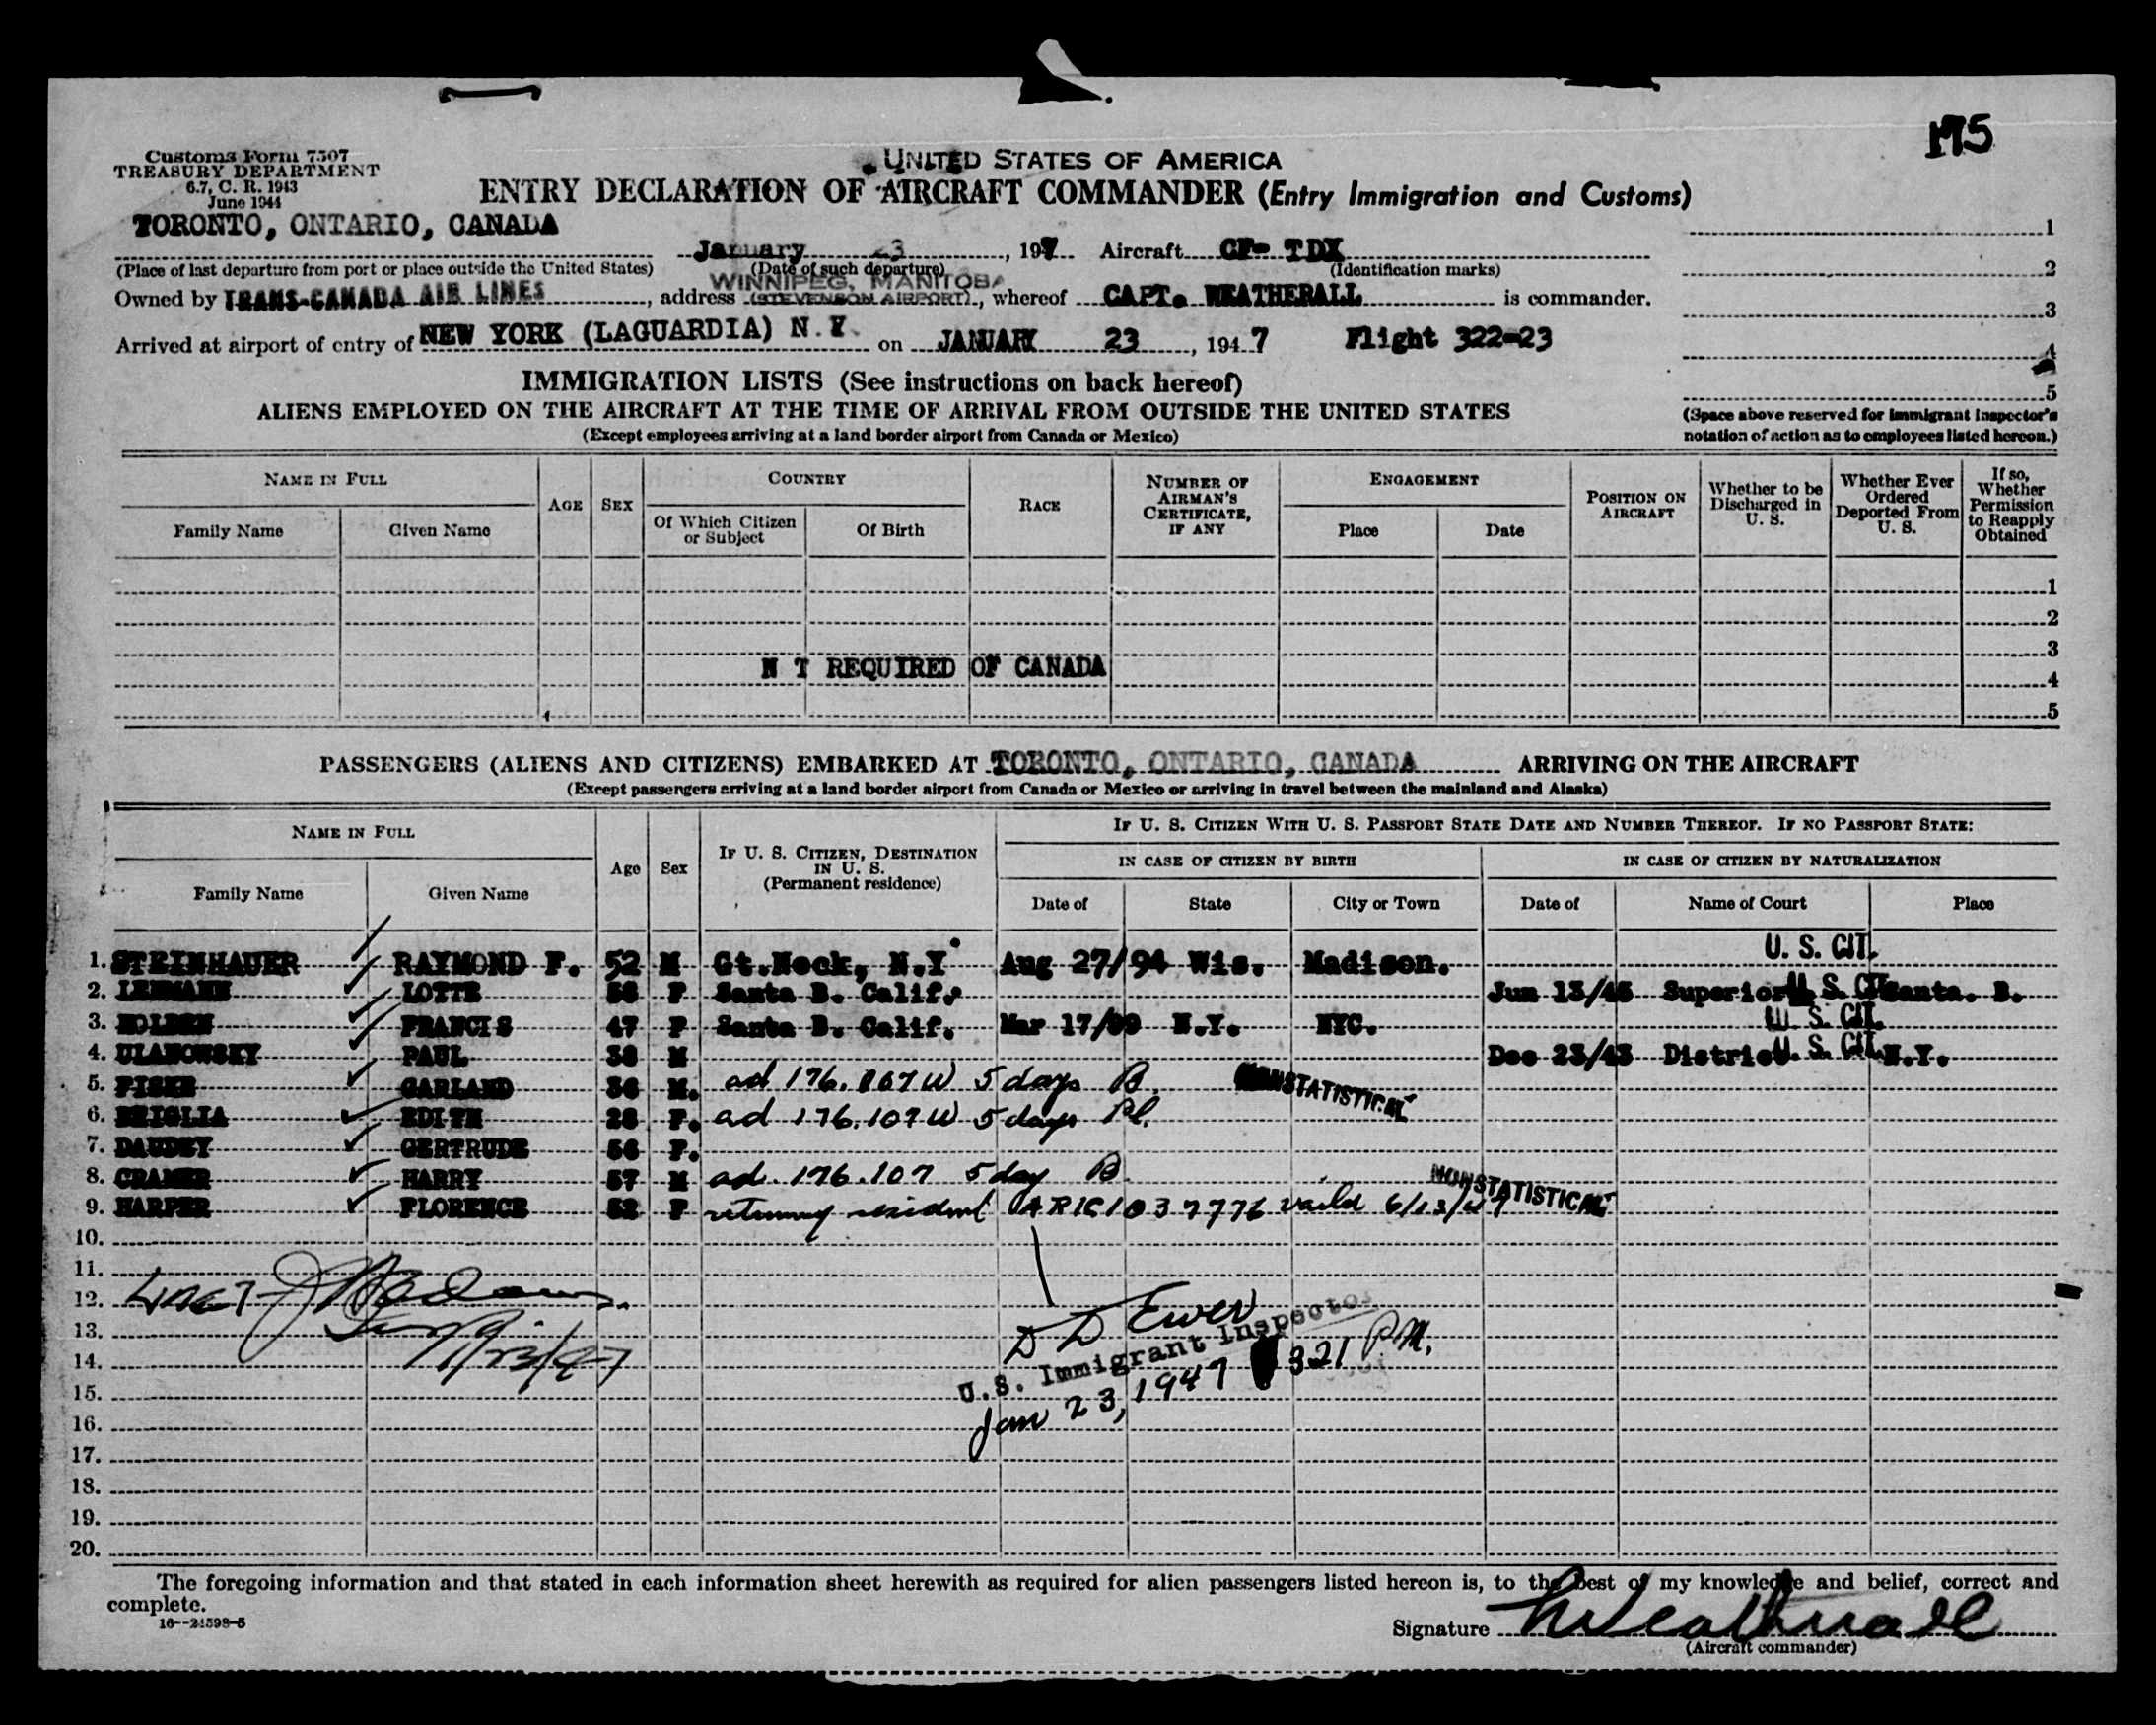 175
Customs Form 7507
TREASURY DEPARTMENT
6.7, C. R. 1943
June 1944
UNITED STATES OF AMERICA
ENTRY DECLARATION OF AIRCRAFT COMMANDER (Entry Immigration and Customs)
TORONTO, ONTARIO, CANADA
January 23, 1947 Aircraft CF- TDX
(Place of last departure from port or place outside the United States) (Date of such departure) (Identification marks)
WINNIPEG, MANITOBA
Owned by TRANS-CANADA AIR LINES, address (STEVENSON AIRPORT), whereof CAPT. WEATHERALL is commander.
Arrived at airport of entry of NEW YORK (LAGUARDIA) N.Y. on JANUARY 23, 1947 Flight 322-23
1
2
3
4
5
(Space above reserved for immigrant inspector's notation of action as to employees listed hereon.)
IMMIGRATION LISTS (See instructions on back hereof)
ALIENS EMPLOYED ON THE AIRCRAFT AT THE TIME OF ARRIVAL FROM OUTSIDE THE UNITED STATES
(Except employees arriving at a land border airport from Canada or Mexico)
NAME IN FULL AGE SEX COUNTRY RACE NUMBER OF AIRMAN'S CERTIFICATE, IF ANY ENGAGEMENT POSITION ON AIRCRAFT Whether to be Discharged in U. S. Whether Ever Ordered Deported From U. S. If so, Whether Permission to Reapply Obtained
Family Name Given Name Of Which Citizen or Subject Of Birth Place Date
1
2
3
N T REQUIRED OF CANADA
4
5
PASSENGERS (ALIENS AND CITIZENS) EMBARKED AT TORONTO, ONTARIO, CANADA ARRIVING ON THE AIRCRAFT
(Except passengers arriving at a land border airport from Canada or Mexico or arriving in travel between the mainland and Alaska)
NAME IN FULL Age Sex IF U. S. CITIZEN, DESTINATION IN U. S. (Permanent residence) IF U. S. CITIZEN WITH U. S. PASSPORT STATE DATE AND NUMBER THEREOF. IF NO PASSPORT STATE:
IN CASE OF CITIZEN BY BIRTH IN CASE OF CITIZEN BY NATURALIZATION
Family Name Given Name Date of State City or Town Date of Name of Court Place
1. STEINHAUER RAYMOND F. 52 M Gt.Neck, N.Y Aug 27/94 Wis. Madison. U. S. CIT.
2. LEHMANN LOTTE 58 F Santa B. Calif. Jun 13/45 Superior U. S. CIT. Santa. B.
3. HOLDEN FRANCIS 47 F Santa B. Calif. Mar 17/99 N.Y. NYC. U. S. CIT.
4. ULANOWSKY PAUL 38 M Dec 23/43 District U. S. CIT. N.Y.
5. FISKE GARLAND 36 M. ad 176.107W 5 days B. NONSTATISTICAL
6. BRIGLIA EDITH 28 F. ad 176.107W 5 days Pl.
7. DAUDEY GERTRUDE 56 F.
8. CRAMER HARRY 57 M ad. 176.107 5 day B. NONSTATISTICAL
9. HARPER FLORENCE 52 F returning resident valid 6/13/47
10.
11.
12.
13.
14.
15.
16.
17.
18.
19.
20.
1/23/47
D D Ewer
U.S. Immigrant Inspector
Jan 23, 1947 321 P.M.
The foregoing information and that stated in each information sheet herewith as required for alien passengers listed hereon is, to the best of my knowledge and belief, correct and
complete.
16--24598-5
Signature Weatherall
(Aircraft commander)